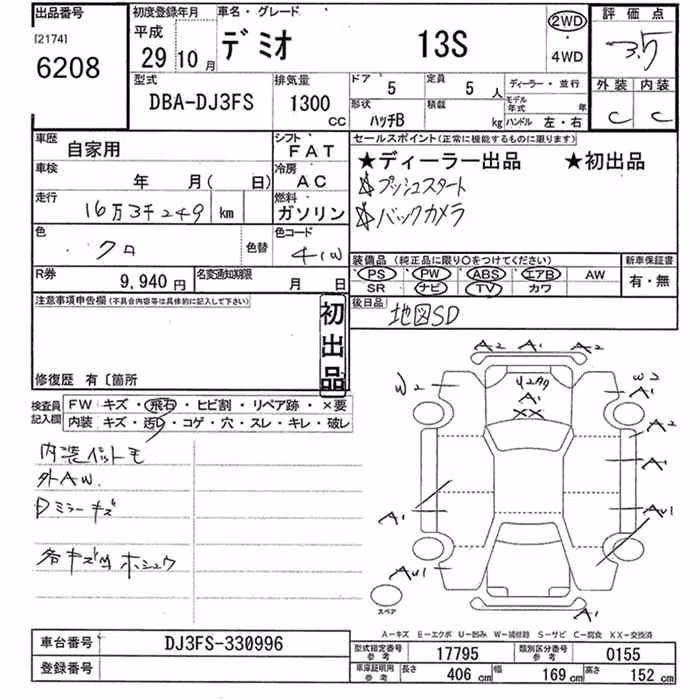 出品番号
[2174]
6208
初度登録年月
平成
29年10月
車名・グレード
デミオ 13S
2WD
・
4WD
評価点
3.5
外装 内装
C C
型式
DBA-DJ3FS
排気量
1300 CC
ドア 5
定員 5人
ディーラー・並行
形状 ハッチB
積載 kg
モデル年式 年
ハンドル 左・右
車歴 自家用
シフト FAT
セールスポイント(正常に機能するものに限ります)
★ディーラー出品 ★初出品
☆プッシュスタート
☆バックカメラ
車検 年 月( 日)
冷房 AC
走行 16万3千249 km
燃料 ガソリン
色 クロ
色替
色コード 41W
装備品(純正品に限り○をつけてください)
PS PW ABS エアB AW
SR ナビ TV カワ
新車保証書
有・無
R券 9,940円
名変通知期限 月 日
後日品 地図SD
注意事項申告欄(不具合内容等は具体的に記入して下さい)
初出品
修復歴 有〔箇所
検査員記入欄
FW キズ・飛石・ヒビ割・リペア跡・×要
内装 キズ・汚レ・コゲ・穴・スレ・キレ・破レ
外AW.
ミラーキズ
A2 A1 A2
W2 W2
A1
XX
A2
A1
A1 AU1
AU1
A1
スペア
A-キズ E-エクボ U-凹み W-補修跡 S-サビ C-腐食 XX-交換済
車台番号 DJ3FS-330996
登録番号
型式指定番号 参考 17795
類別区分番号 参考 0155
車庫証明用 参考 長さ 406cm 幅 169cm 高さ 152cm